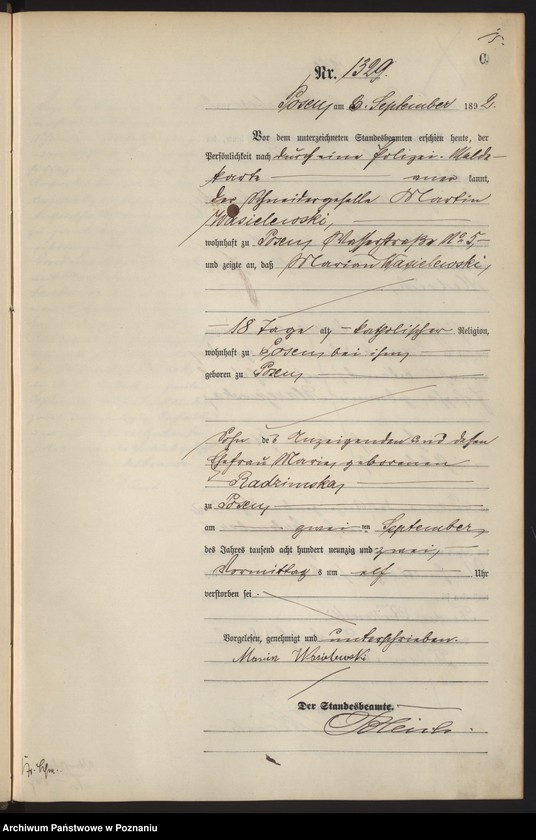 C.
Nr. 1329.
Posen, am 6. September 1892.
Vor dem unterzeichneten Standesbeamten erschien heute, der
Persönlichkeit nach durch eine Polizei-Melde-
karte aner kannt,
der Schneidergeselle Martin
Wasielewski,
wohnhaft zu Posen, Wasserstraße No 5,
und zeigte an, daß Marian Wasielewski,
18 Tage alt, katholischer Religion,
wohnhaft zu Posen, bei ihm,
geboren zu Posen,
Sohn des Anzeigenden und dessen
Ehefrau Marie, geborenen
Radzimska,
zu Posen,
am zwei ten September,
des Jahres tausend acht hundert neunzig und zwei,
Vormittag s um elf Uhr
verstorben sei.
Vorgelesen, genehmigt und unterschrieben.
Wasielewski
Der Standesbeamte.
Archiwum Państwowe w Poznaniu